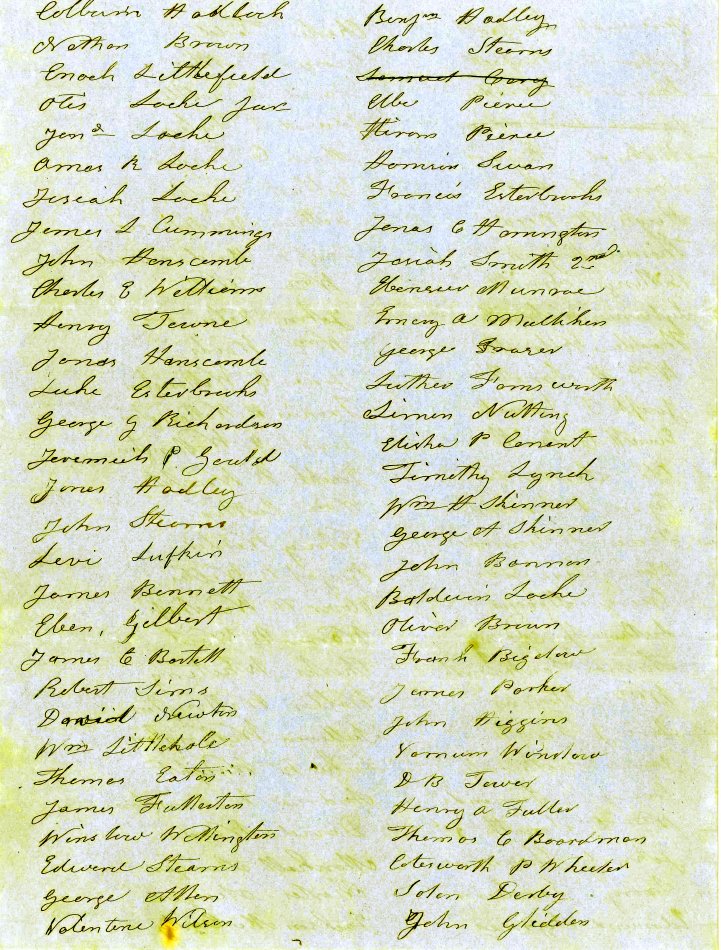 Nathan Brown
Enoch Littlefield
Otis Locke Junr
Jona Locke
Amos R Locke
Josiah Locke
James S Cummings
John Hanscomb
Charles E Williams
Henry Towne
Jonas Hanscomb
Luke Esterbrooks
George G Richardson
Jeremiah P Gould
Jonas Hadley
John Stearns
Levi Lufkin
James Bennett
Eben, Gilbert
James C Bartett
Robert Sims
David Newton
Wm Littlehale
Thomas Eaton
James Fullerton
Winslow Wellington
Edward Stearns
George
Valentine Wilson
Benjm Hadley
Charles Stearns
Samuel
Pierce
Hiram Pierce
Swan
Francis Esterbrooks
Jonas C Harrington
Josiah Smith 2nd
Ebenezer Munroe
Emery A Mulliken
George Fraser
Luther Farnsworth
Simon Nutting
Elisha P Conant
Timothy Lynch
Wm H Skinner
George A Skinner
John Bannon
Baldwin Locke
Oliver Brown
Frank Bigelow
James Parker
John Higgins
Varnum Winslow
D B Tower
Henry A Fuller
Thomas C Boardman
Cotesworth P Wheeler
Solon Derby
John Glidden